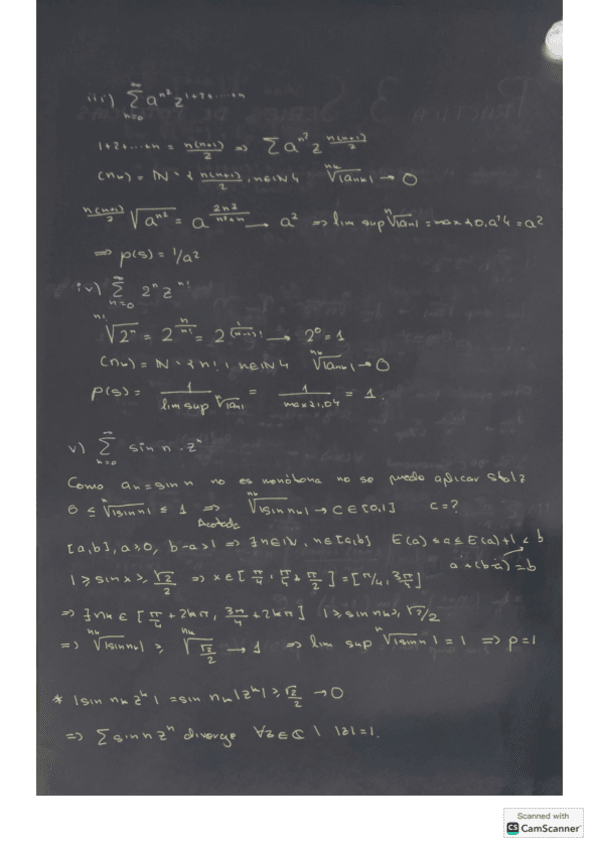 iii) ∑_{n=0}^{∞} a^{n²} z^{1+2+...+n}
1+2+...+n = n(n+1)/2 => ∑ a^{n²} z^{n(n+1)/2}
(n_k) = ℕ - { n(n+1)/2, n∈ℕ } ^{n_k}√|a_{n_k}| → 0
^{n(n+1)/2}√a^{n²} = a^{2n²/(n²+n)} → a² => lim sup ^n√|a_n| = max{0,a²} = a²
=> ρ(s) = 1/a²
iv) ∑_{n=0}^{∞} 2^n z^{n!}
^{n!}√2^n = 2^{n/n!} = 2^{1/(n-1)!} → 2^0 = 1
(n_k) = ℕ - { n!, n∈ℕ } ^{n_k}√|a_{n_k}| → 0
ρ(s) = 1/(lim sup ^n√|a_n|) = 1/(max{1,0}) = 1.
v) ∑_{n=0}^{∞} sin n · z^n
Como a_n = sin n no es monótona no se puede aplicar Stolz
0 ≤ ^n√|sin n| ≤ 1 => ^{n_k}√|sin n_k| → C ∈ [0,1] C = ?
Acotada
[a,b], a≥0, b-a>1 => ∃n∈ℕ, n∈[a,b] E(a) ≤ a ≤ E(a)+1 < b
a+(b-a) = b
1 ≥ sin x ≥ √2/2 => x ∈ [π/4, π/4 + π/2] = [π/4, 3π/4]
=> ∃n_k ∈ [π/4 + 2kπ, 3π/4 + 2kπ] 1 ≥ sin n_k ≥ √2/2
=> ^{n_k}√|sin n_k| ≥ ^{n_k}√(√2/2) → 1 => lim sup ^n√|sin n| = 1 => ρ = 1
* |sin n_k z^k| = sin n_k |z^k| ≥ √2/2 → 0
=> ∑ sin n z^n diverge ∀z∈ℂ | |z| = 1.
Scanned with
CS CamScanner